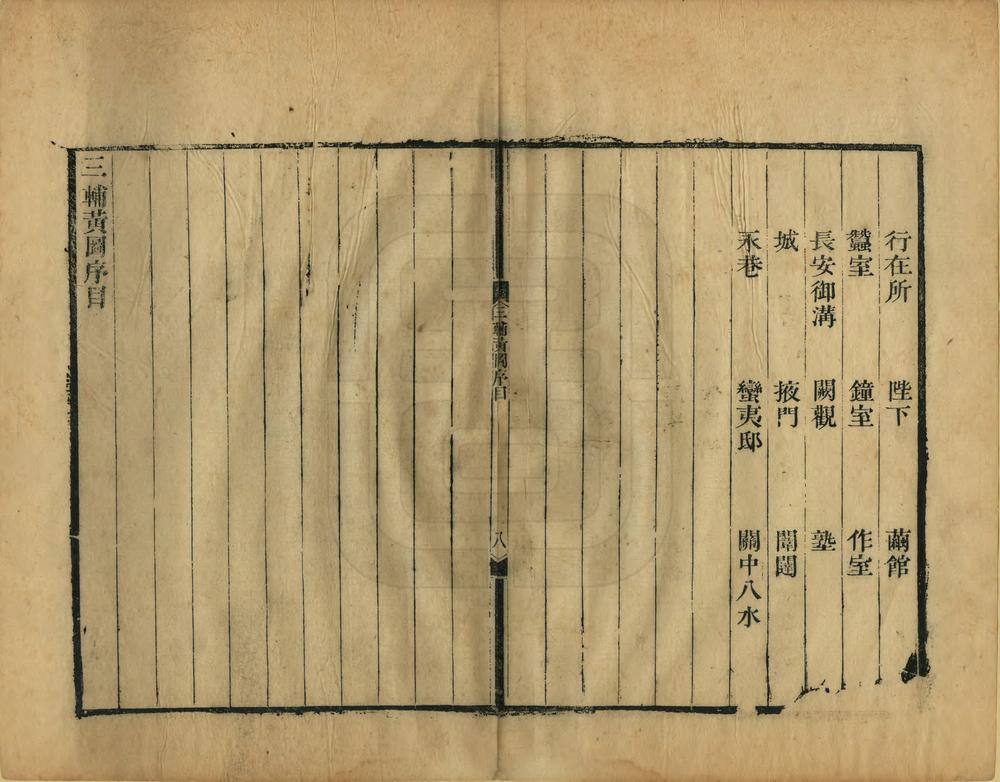 行在所 陛下 繭館
蠶室 鐘室 作室
長安御溝 闕觀 塾
城 掖門 闈闥
永巷 蠻夷邸 關中八水
三輔黃圖序目
八
三輔黃圖序目